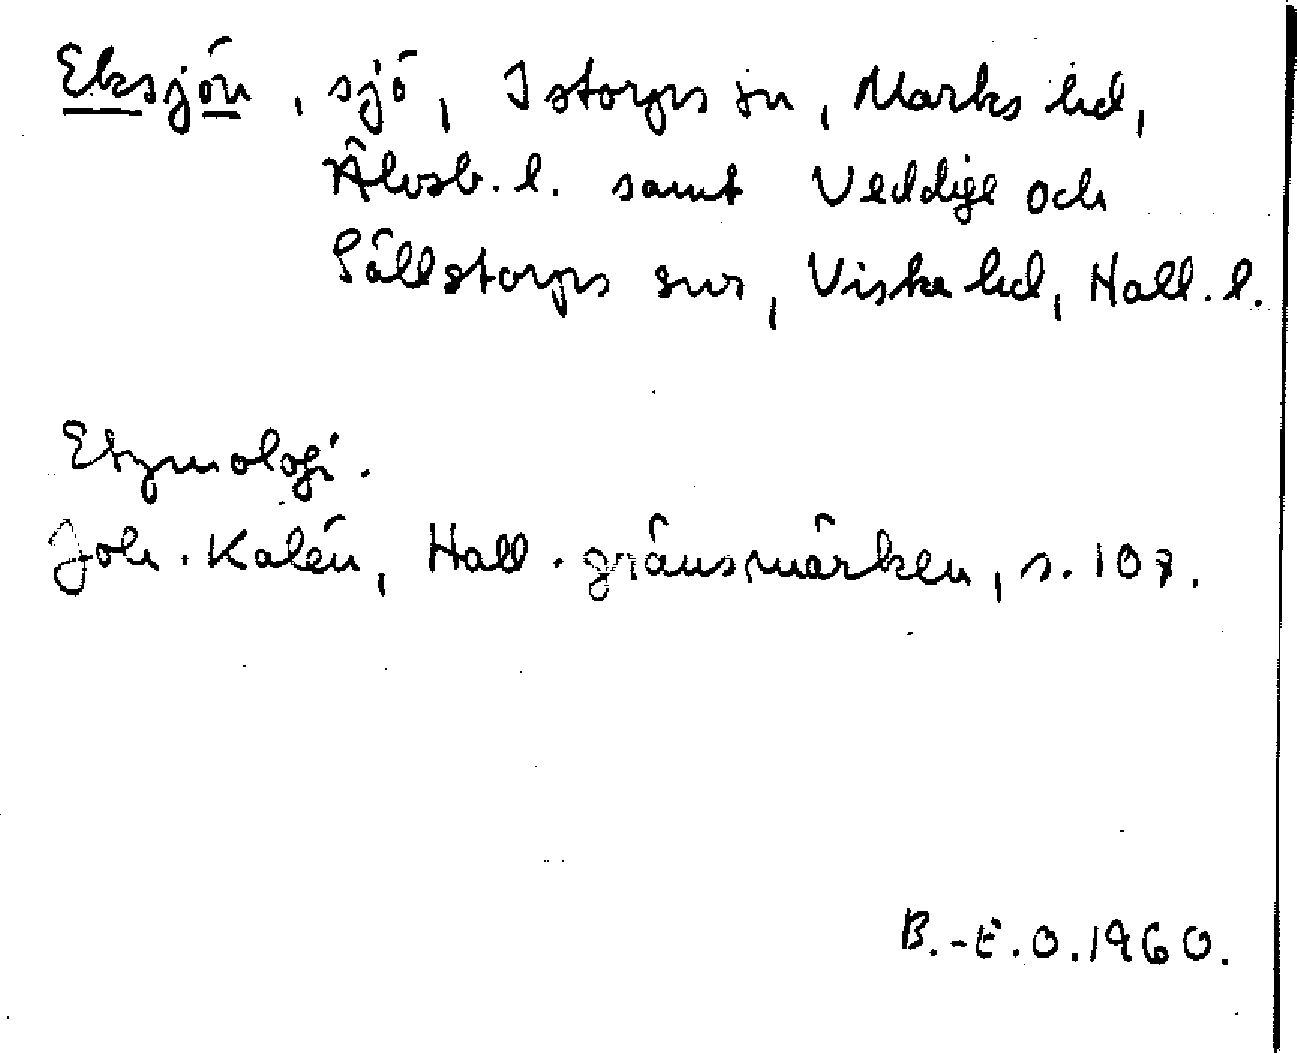 Eksjön, sjö, Istorps sn, Marks hd,
Älvsb. l. samt Veddige och
Sällstorps snr, Viske hd, Hall. l.
Etymologi.
Joh. Kalén, Hall. gränsmärken, s. 107.
B.-E.O.1960.